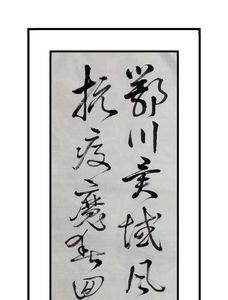 鄂川异域风
抗疫魔